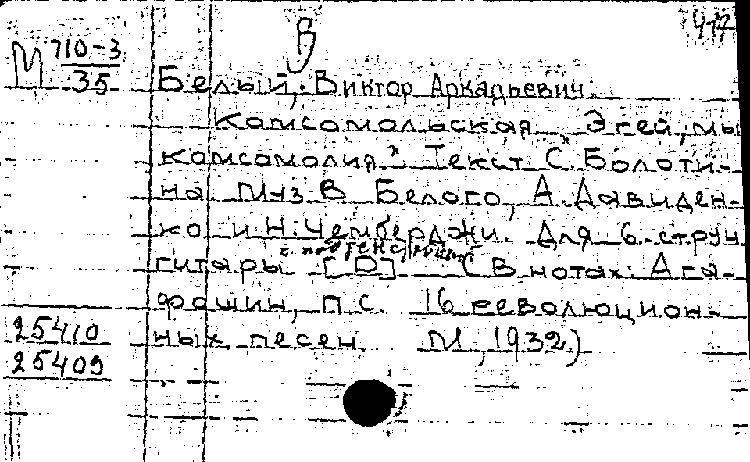 В
М 710-3
35
Белый, Виктор Аркадьевич.
Комсомольская „Эгей, мы
комсомолия" Текст С. Болоти-
на Муз. В. Белого, А. Давиден-
ко и Н. Чемберджи. Для 6-струн
гитары [D] (В нотах: Ага-
фошин, П. С. 16 революцион-
ных песен. М., 1932)
25410
25409